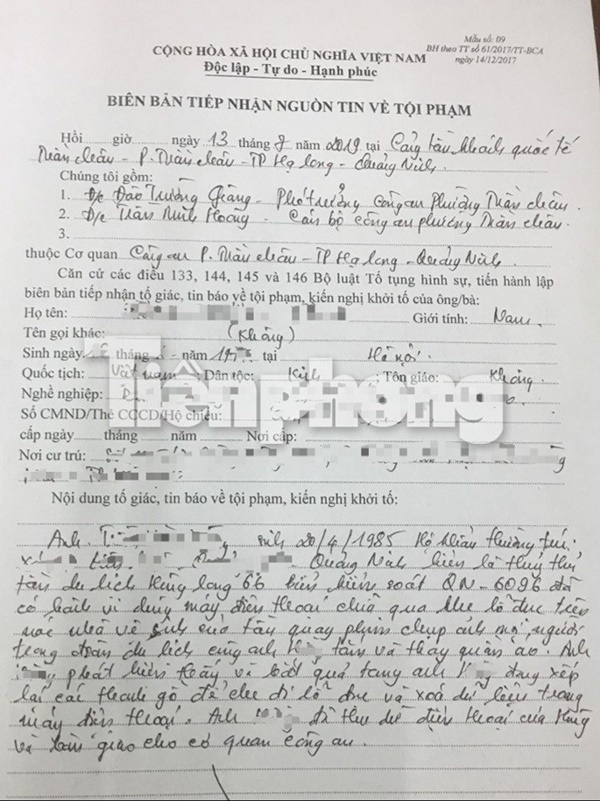 Mẫu số: 09
BH theo TT số 61/2017/TT-BCA
ngày 14/12/2017
CỘNG HÒA XÃ HỘI CHỦ NGHĨA VIỆT NAM
Độc lập - Tự do - Hạnh phúc
BIÊN BẢN TIẾP NHẬN NGUỒN TIN VỀ TỘI PHẠM
Hồi giờ ngày 13 tháng 8 năm 2019 tại Cảng tàu khách quốc tế
Tuần Châu - P. Tuần Châu - TP Hạ Long - Quảng Ninh.
Chúng tôi gồm:
1. Đ/c Đào Trường Giang - Phó trưởng công an phường Tuần Châu.
2. Đ/c Trần Minh Hoàng - Cán bộ công an phường Tuần Châu.
3.
thuộc Cơ quan Công an P. Tuần Châu - TP Hạ Long - Quảng Ninh.
Căn cứ các điều 133, 144, 145 và 146 Bộ luật Tố tụng hình sự, tiến hành lập
biên bản tiếp nhận tố giác, tin báo về tội phạm, kiến nghị khởi tố của ông/bà:
Họ tên: Giới tính: Nam.
Tên gọi khác: (Không)
Sinh ngày tháng năm tại Hà Nội.
Quốc tịch: Việt Nam; Dân tộc: Kinh; Tôn giáo: Không
Tiền phong
Nghề nghiệp:
Số CMND/Thẻ CCCD/Hộ chiếu:
cấp ngày tháng năm Nơi cấp:
Nơi cư trú:
Nội dung tố giác, tin báo về tội phạm, kiến nghị khởi tố:
Anh sinh 20/4/1985 Hộ khẩu thường trú:
Quảng Ninh hiện là thuỷ thủ
tàu du lịch Hùng Long 66 biển kiểm soát QN-6096 đã
có hành vi dùng máy điện thoại chui qua khe lỗ đục trên
nóc nhà vệ sinh của tàu quay phim chụp ảnh mọi người
trong đoàn du lịch cùng anh tắm và thay quần áo. Anh
phát hiện thấy và bắt quả tang anh đang xếp
lại các thanh gỗ để che đi lỗ đục và xoá dữ liệu trong
máy điện thoại. Anh đã thu giữ điện thoại của Hùng
và bàn giao cho cơ quan công an.